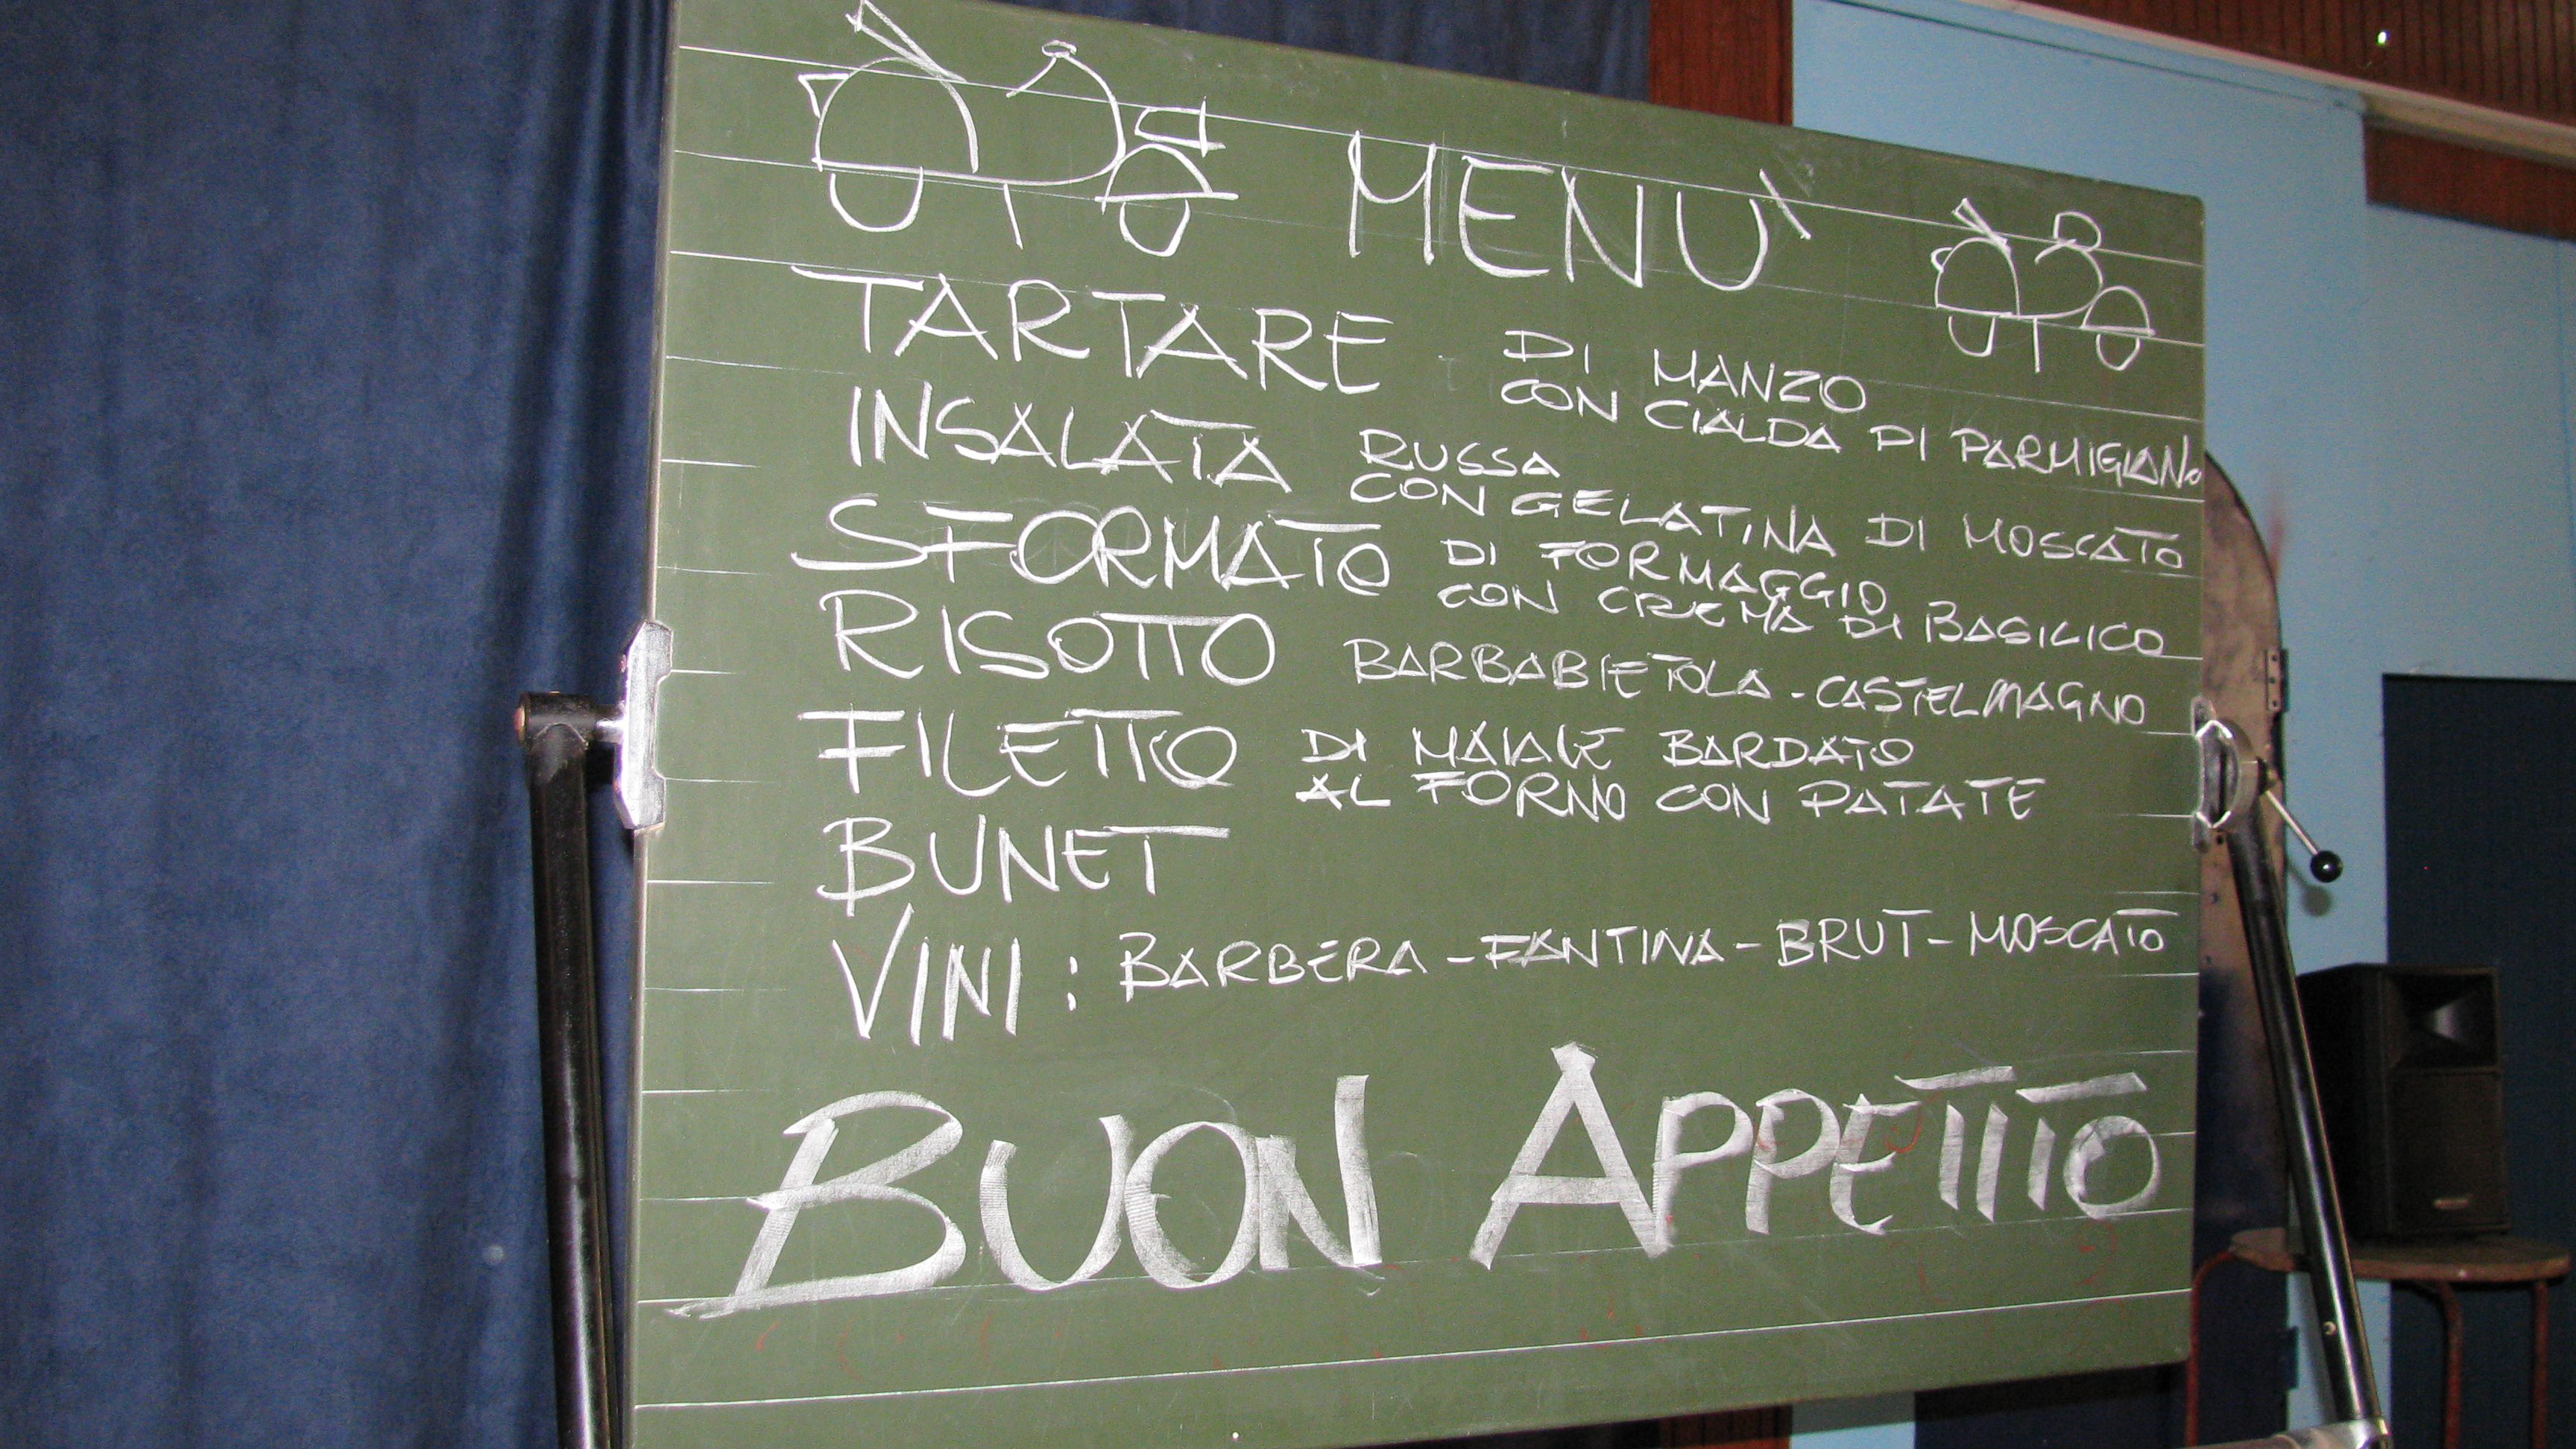 MENU'
TARTARE DI MANZO
CON CIALDA DI PARMIGIANO
INSALATA RUSSA
CON GELATINA DI MOSCATO
SFORMATO DI FORMAGGIO
CON CREMA DI BASILICO
RISOTTO BARBABIETOLA - CASTELMAGNO
FILETTO DI MAIALE BARDATO
AL FORNO CON PATATE
BUNET
VINI : BARBERA - FANTINA - BRUT - MOSCATO
BUON APPETITO